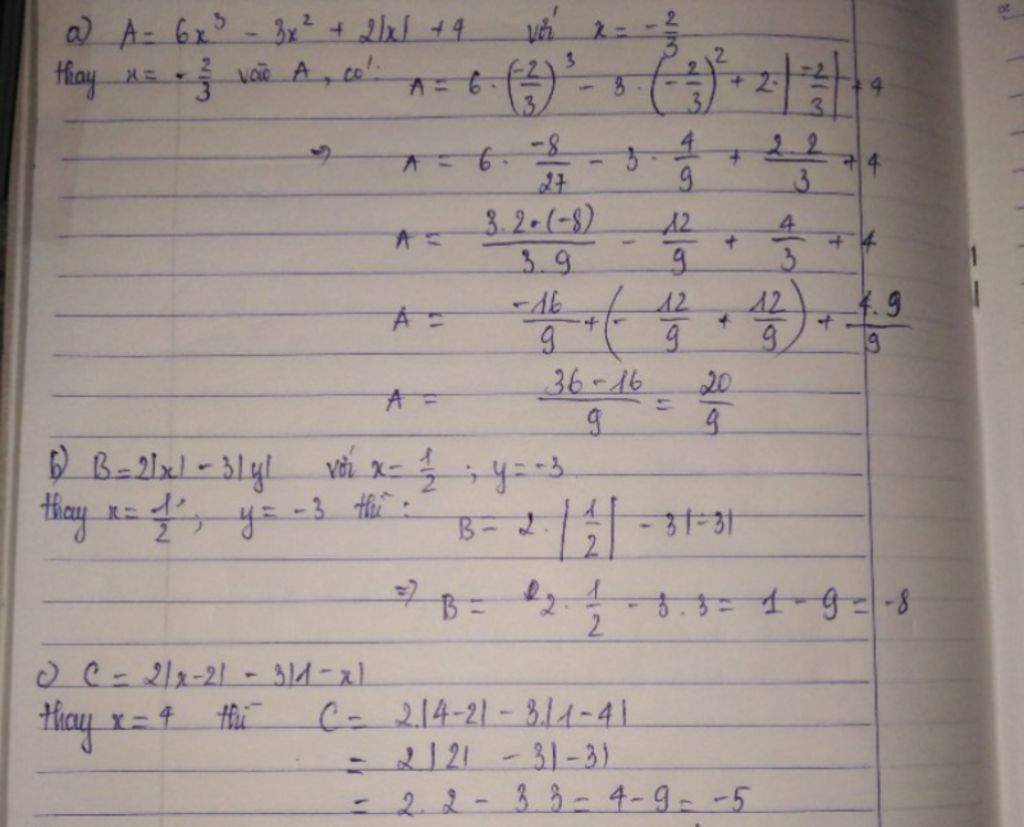 a) A = 6x³ - 3x² + 2|x| + 4 với x = -2/3
thay x = -2/3 vào A, có: A = 6 · (-2/3)³ - 3 · (-2/3)² + 2 · |-2/3| + 4
=> A = 6 · -8/27 - 3 · 4/9 + 2.2/3 + 4
A = 3.2.(-8)/3.9 - 12/9 + 4/3 + 4
A = -16/9 + (-12/9 + 12/9) + 4.9/9
A = 36-16/9 = 20/9
b) B = 2|x| - 3|y| với x = 1/2 ; y = -3
thay x = 1/2 ; y = -3 thì : B = 2 · |1/2| - 3|-3|
=> B = 2 · 1/2 - 3.3 = 1 - 9 = -8
c) C = 2|x-2| - 3|1-x|
thay x = 4 thì C = 2.|4-2| - 3.|1-4|
= 2|2| - 3|-3|
= 2.2 - 3.3 = 4-9 = -5